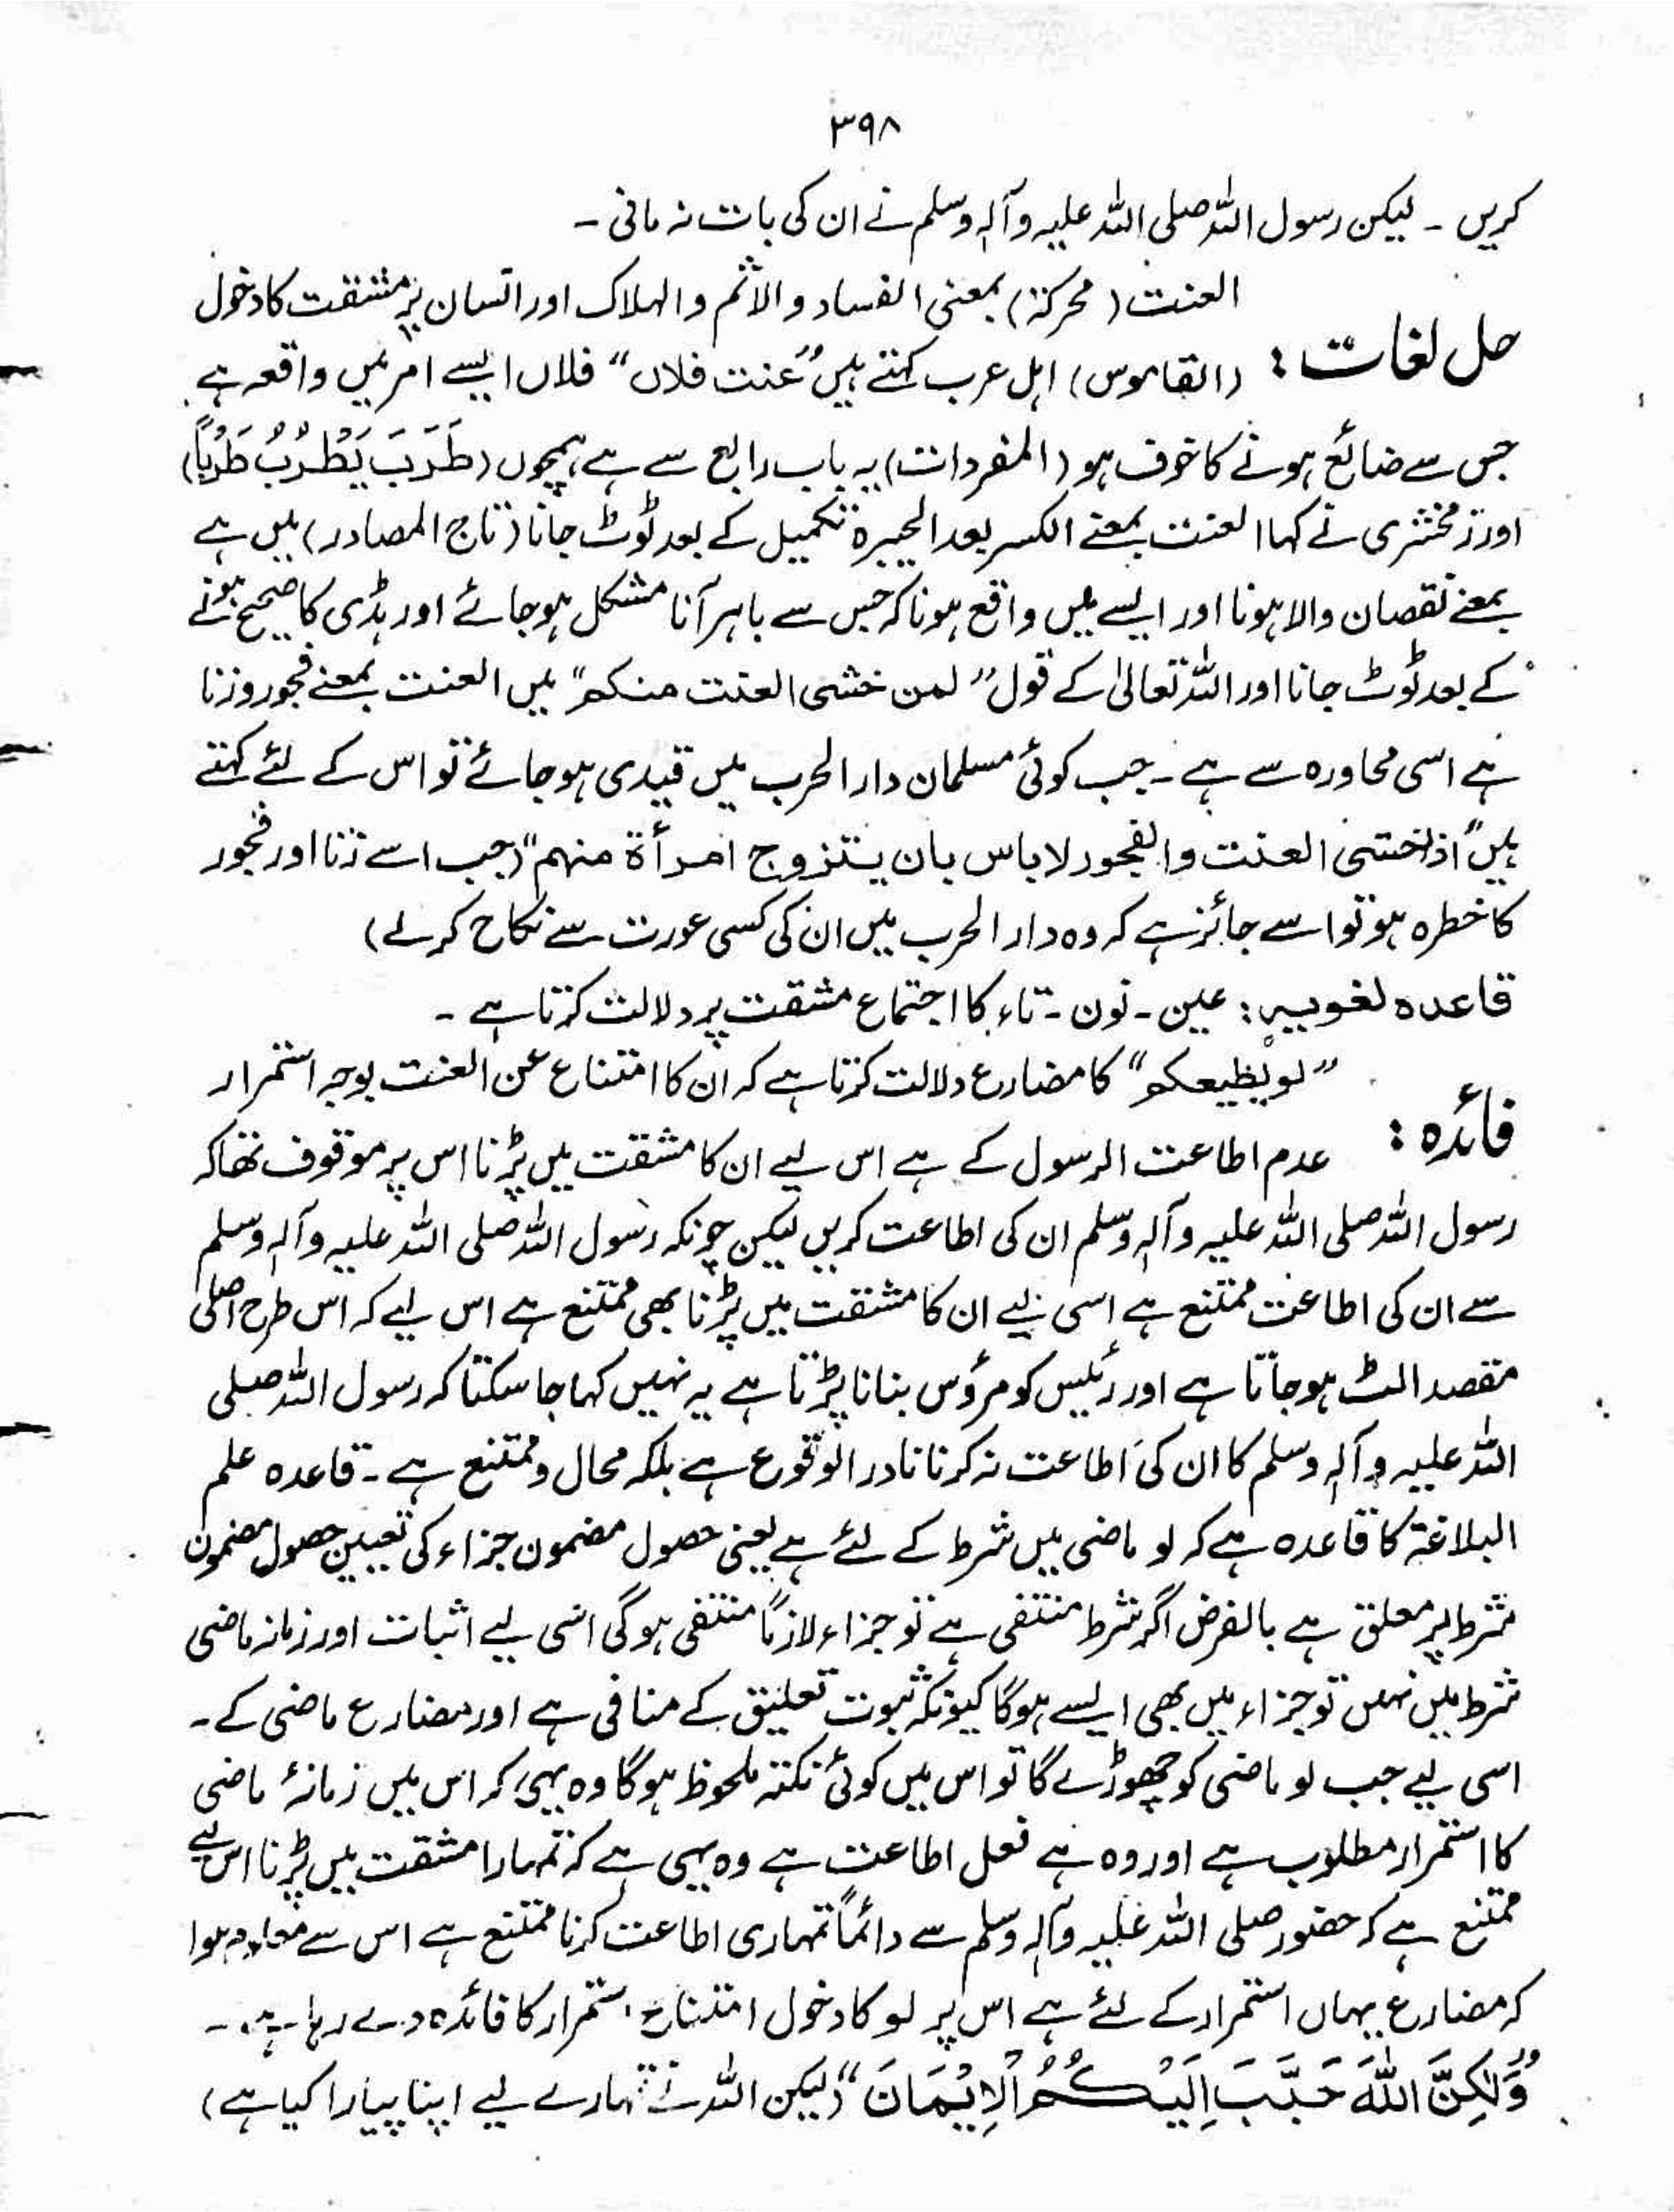 ۳۹۸
کریں ۔ لیکن رسول اللہ صلی اللہ علیہ وآلہ وسلم نے ان کی بات نہ مانی ۔
العنت (محرکۃ) بمعنی الفساد و الاثم و الہلاک اور انسان پر مشقت کا دخول
حل لغات : (القاموس) اہل عرب کہتے ہیں "عنت فلان" فلاں ایسے امر میں واقعہ ہے
جس سے ضائع ہونے کا خوف ہو (المفردات) یہ باب رابع سے ہے ہمچوں (طَرَبَ یَطْرُبُ طَرْباً)
اور زمخشری نے کہا العنت بمعنے الکسر بعد الجبرۃ تکمیل کے بعد ٹوٹ جانا (تاج المصادر) میں ہے
بمعنے نقصان والا ہونا اور ایسے میں واقع ہونا کہ جس سے باہر آنا مشکل ہو جائے اور ہڈی کا صحیح ہونے
کے بعد ٹوٹ جانا اور اللہ تعالیٰ کے قول "لمن خشی العنت منکم" میں العنت بمعنے فجور و زنا
ہے اسی محاورہ سے ہے ۔ جب کوئی مسلمان دار الحرب میں قیدی ہو جائے تو اس کے لئے کہتے
ہیں "اذا خشی العنت والفجور لا باس بان یتزوج امرأۃ منہم" (جب اسے زنا اور فجور
کا خطرہ ہو تو اسے جائز ہے کہ وہ دار الحرب میں ان کی کسی عورت سے نکاح کر لے)
قاعدہ لغویہ : عین ۔ نون ۔ تاء کا اجتماع مشقت پر دلالت کرتا ہے ۔
"لو یطیعکم" کا مضارع دلالت کرتا ہے کہ ان کا امتناع عن العنت بوجہ استمرار
فائدہ : عدم اطاعت الرسول کے ہے اس لیے ان کا مشقت میں پڑنا اس پر موقوف تھا کہ
رسول اللہ صلی اللہ علیہ وآلہ وسلم ان کی اطاعت کریں لیکن چونکہ رسول اللہ صلی اللہ علیہ وآلہ وسلم
سے ان کی اطاعت ممتنع ہے اسی لیے ان کا مشقت میں پڑنا بھی ممتنع ہے اس لیے کہ اس طرح اصلی
مقصد الٹ ہو جاتا ہے اور رئیس کو مرؤس بنانا پڑتا ہے یہ نہیں کہا جا سکتا کہ رسول اللہ صلی
اللہ علیہ وآلہ وسلم کا ان کی اطاعت نہ کرنا نادر الوقوع ہے بلکہ محال و ممتنع ہے ۔ قاعدہ علم
البلاغۃ کا قاعدہ ہے کہ لو ماضی میں شرط کے لئے ہے یعنی حصول مضمون جزاء کی تعیین حصول مضمون
شرط پر معلق ہے بالفرض اگر شرط منتفی ہے تو جزاء لازماً منتفی ہوگی اسی لیے اثبات اور زمانہ ماضی
شرط میں نہیں تو جزاء میں بھی ایسے ہوگا کیونکہ ثبوت تعلیق کے منافی ہے اور مضارع ماضی کے ۔
اسی لیے جب لو ماضی کو چھوڑے گا تو اس میں کوئی نکتہ ملحوظ ہوگا وہ یہی کہ اس میں زمانۂ ماضی
کا استمرار مطلوب ہے اور وہ ہے فعل اطاعت ہے وہ یہی ہے کہ تمہارا مشقت میں پڑنا اس لیے
ممتنع ہے کہ حضور صلی اللہ علیہ وآلہ وسلم سے دائماً تمہاری اطاعت کرنا ممتنع ہے اس سے معلوم ہوا
کہ مضارع یہاں استمرار کے لئے ہے اس پر لو کا دخول امتناع استمرار کا فائدہ دے رہا ہے ۔
"وَلٰکِنَّ اللّٰہَ حَبَّبَ اِلَیْکُمُ الْاِیْمَانَ" (لیکن اللہ نے تمہارے لیے اپنا پیارا کیا ہے)